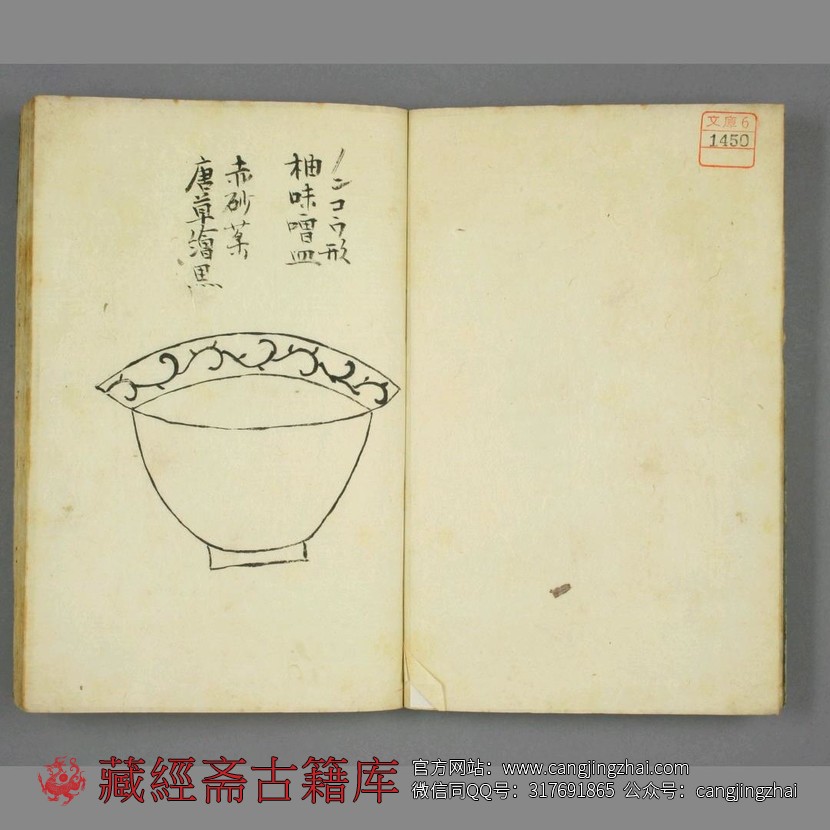 ノンコウ形
柚味噌皿
赤砂薬
唐草繪黒
文庫6
1450
藏經斋古籍库
官方网站：www.cangjingzhai.com
微信同QQ号：317691865 公众号：cangjingzhai